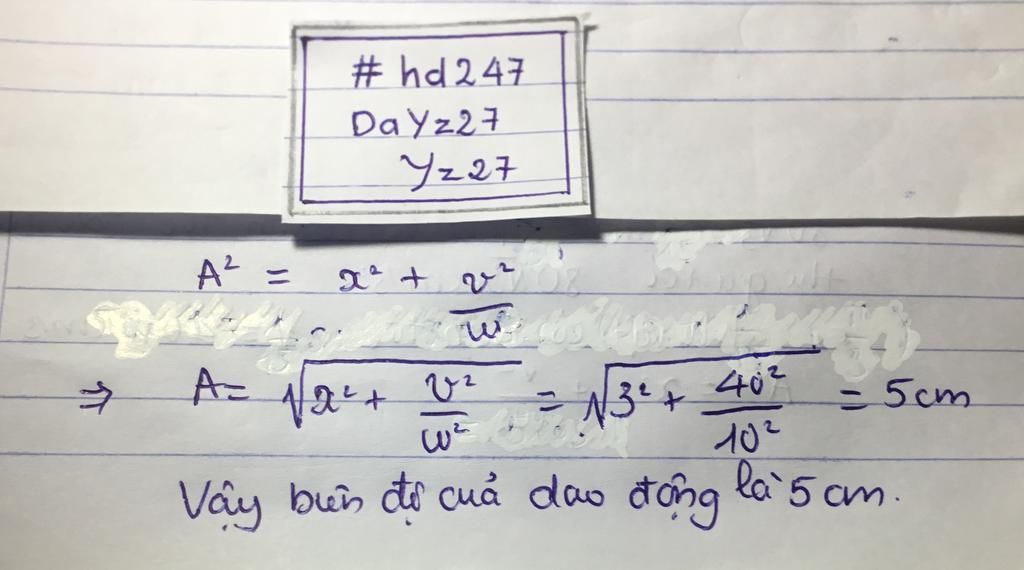 # hd247
DaYz27
Yz27
A² = x² + v²/w
⇒ A = √(x² + v²/w²) = √(3² + 40²/10²) = 5cm
Vậy biên độ cuả dao động là 5 cm.